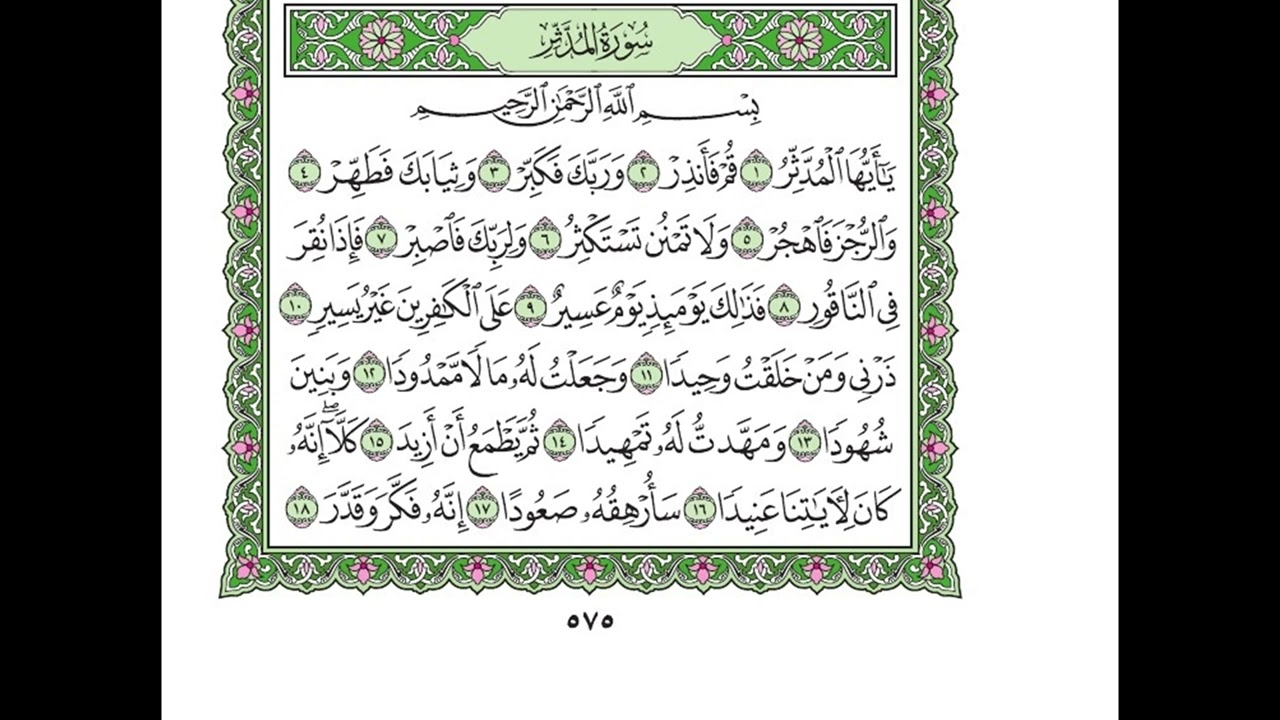 سُورَةُ الْمُدَّثِّرِ
بِسْمِ ٱللَّهِ ٱلرَّحْمَٰنِ ٱلرَّحِيمِ
يَٰٓأَيُّهَا ٱلْمُدَّثِّرُ ١ قُمْ فَأَنذِرْ ٢ وَرَبَّكَ فَكَبِّرْ ٣ وَثِيَابَكَ فَطَهِّرْ ٤
وَٱلرُّجْزَ فَٱهْجُرْ ٥ وَلَا تَمْنُن تَسْتَكْثِرُ ٦ وَلِرَبِّكَ فَٱصْبِرْ ٧ فَإِذَا نُقِرَ
فِى ٱلنَّاقُورِ ٨ فَذَٰلِكَ يَوْمَئِذٍ يَوْمٌ عَسِيرٌ ٩ عَلَى ٱلْكَٰفِرِينَ غَيْرُ يَسِيرٍ ١٠
ذَرْنِى وَمَنْ خَلَقْتُ وَحِيدًا ١١ وَجَعَلْتُ لَهُۥ مَالًا مَّمْدُودًا ١٢ وَبَنِينَ
شُهُودًا ١٣ وَمَهَّدتُّ لَهُۥ تَمْهِيدًا ١٤ ثُمَّ يَطْمَعُ أَنْ أَزِيدَ ١٥ كَلَّآ ۖ إِنَّهُۥ
كَانَ لِءَايَٰتِنَا عَنِيدًا ١٦ سَأُرْهِقُهُۥ صَعُودًا ١٧ إِنَّهُۥ فَكَّرَ وَقَدَّرَ ١٨
٥٧٥